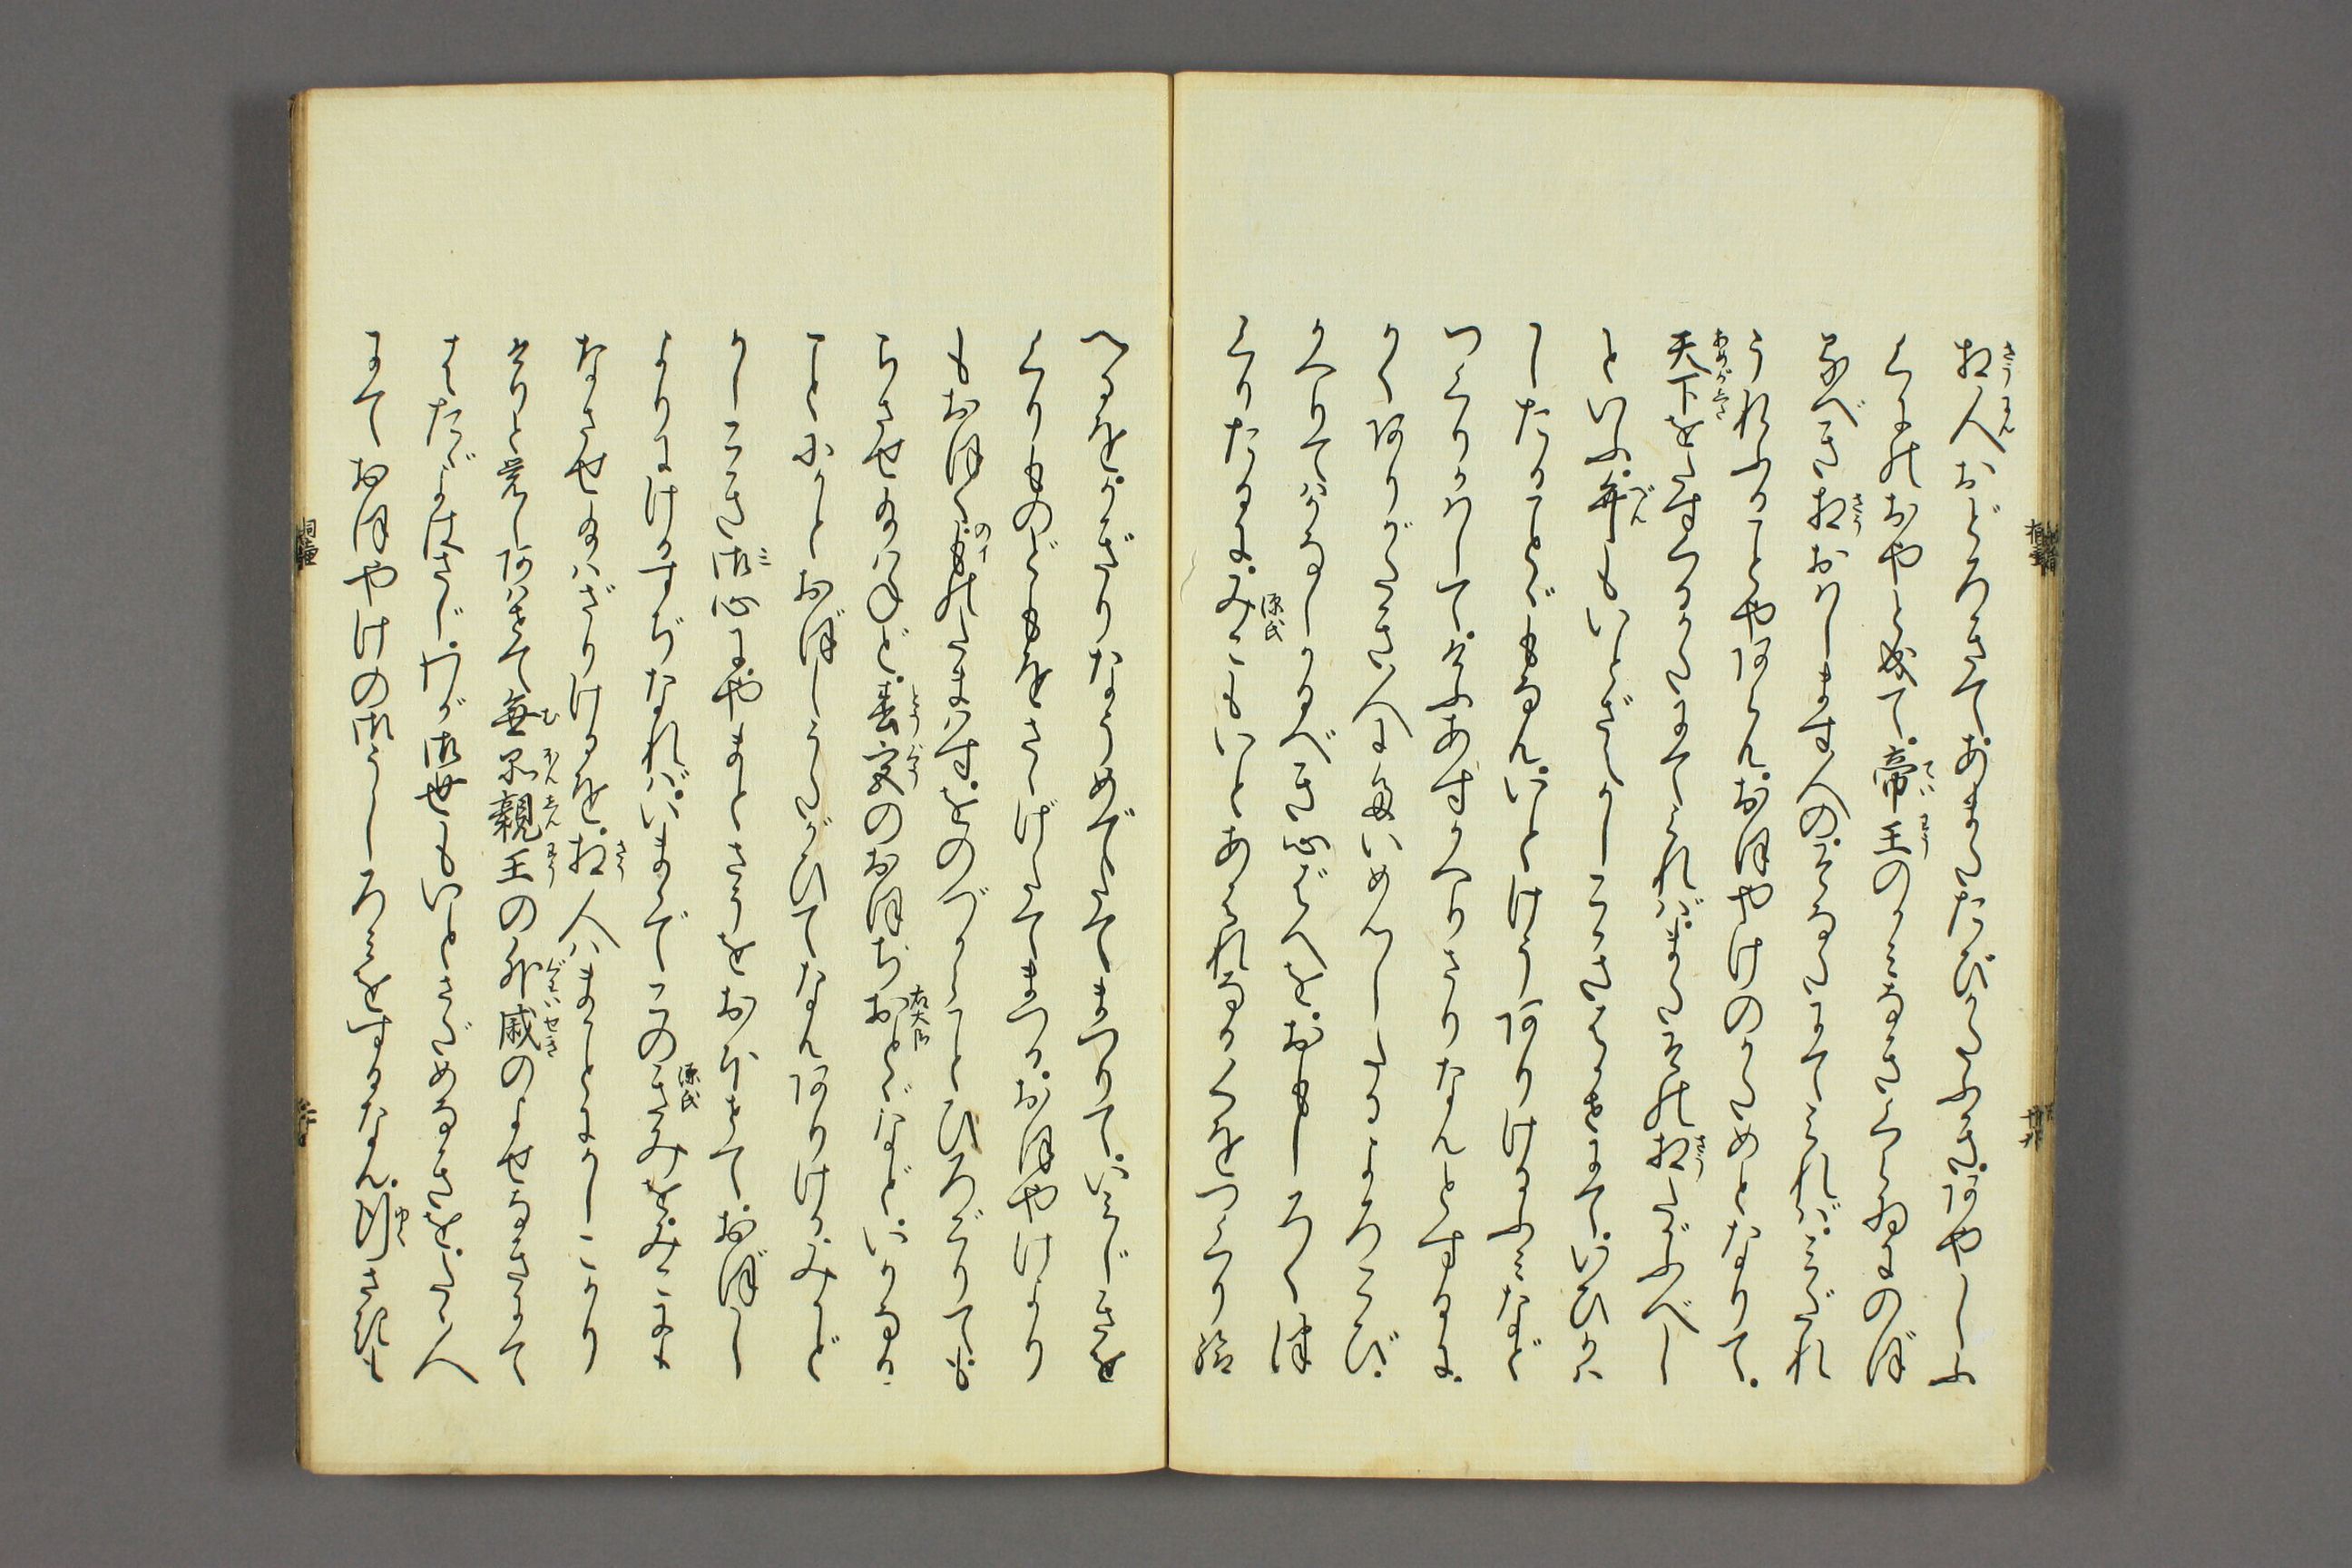 相人おどろきて。あまたたびかたふきあやしふ
くにのおやと成て。帝王のかみなきくらゐにのぼ
るべき相おはします人の。そなたにてみれば。みだれ
うれふることやあらん。おほやけのかためとなりて。
天下をたすくるかたにてみれば。又その相たがふべし
といふ。弁もいとざえかしこきはかせにて。いひかは
したることどもなん。いとけうありける。ふみなど
つくりかはして。けふあすかへりさりなんとするに。
かくありがたき人にたいめんしたるよろこび。
かへりてはかなしかるべき心ばへを。おもしろく
つくりたるに。みこもいとあはれなる句をつくり給
へるを。かぎりなうめでたてまつりて。いみじきを
くりものどもをさゝげたてまつる。おほやけより
もおほくの物たまはす。をのづからことひろごりて。も
らさせ給はねど。春宮のおほぢおとゞなど。いかなる
ことにかとおぼしうたがひてなんありける。みかど
かしこき御心に。やまとさうをおほせて。おぼし
よりにけるすぢなれば。いままでこのきみを。みこにも
なさせ給はざりけるを。相人はまことにかしこかり
けりと覚しあはせて無品親王の外戚のよせなきにて
はたゞよはさじ。わが御世もいとさだめなきを。たゞ人
にておほやけの御うしろみをするなん。行さきも